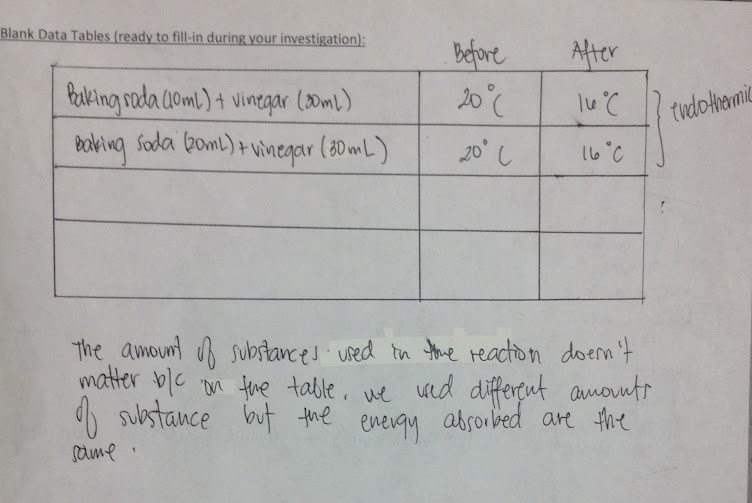 Blank Data Tables (ready to fill-in during your investigation):
Before After
Baking soda (10mL) + vinegar (30mL) 20°C 16°C
Baking soda (20mL) + vinegar (30mL) 20°C 16°C
} endothermic
The amount of substances used in the reaction doesn't
matter b/c on the table, we used different amounts
of substance but the energy absorbed are the
same.